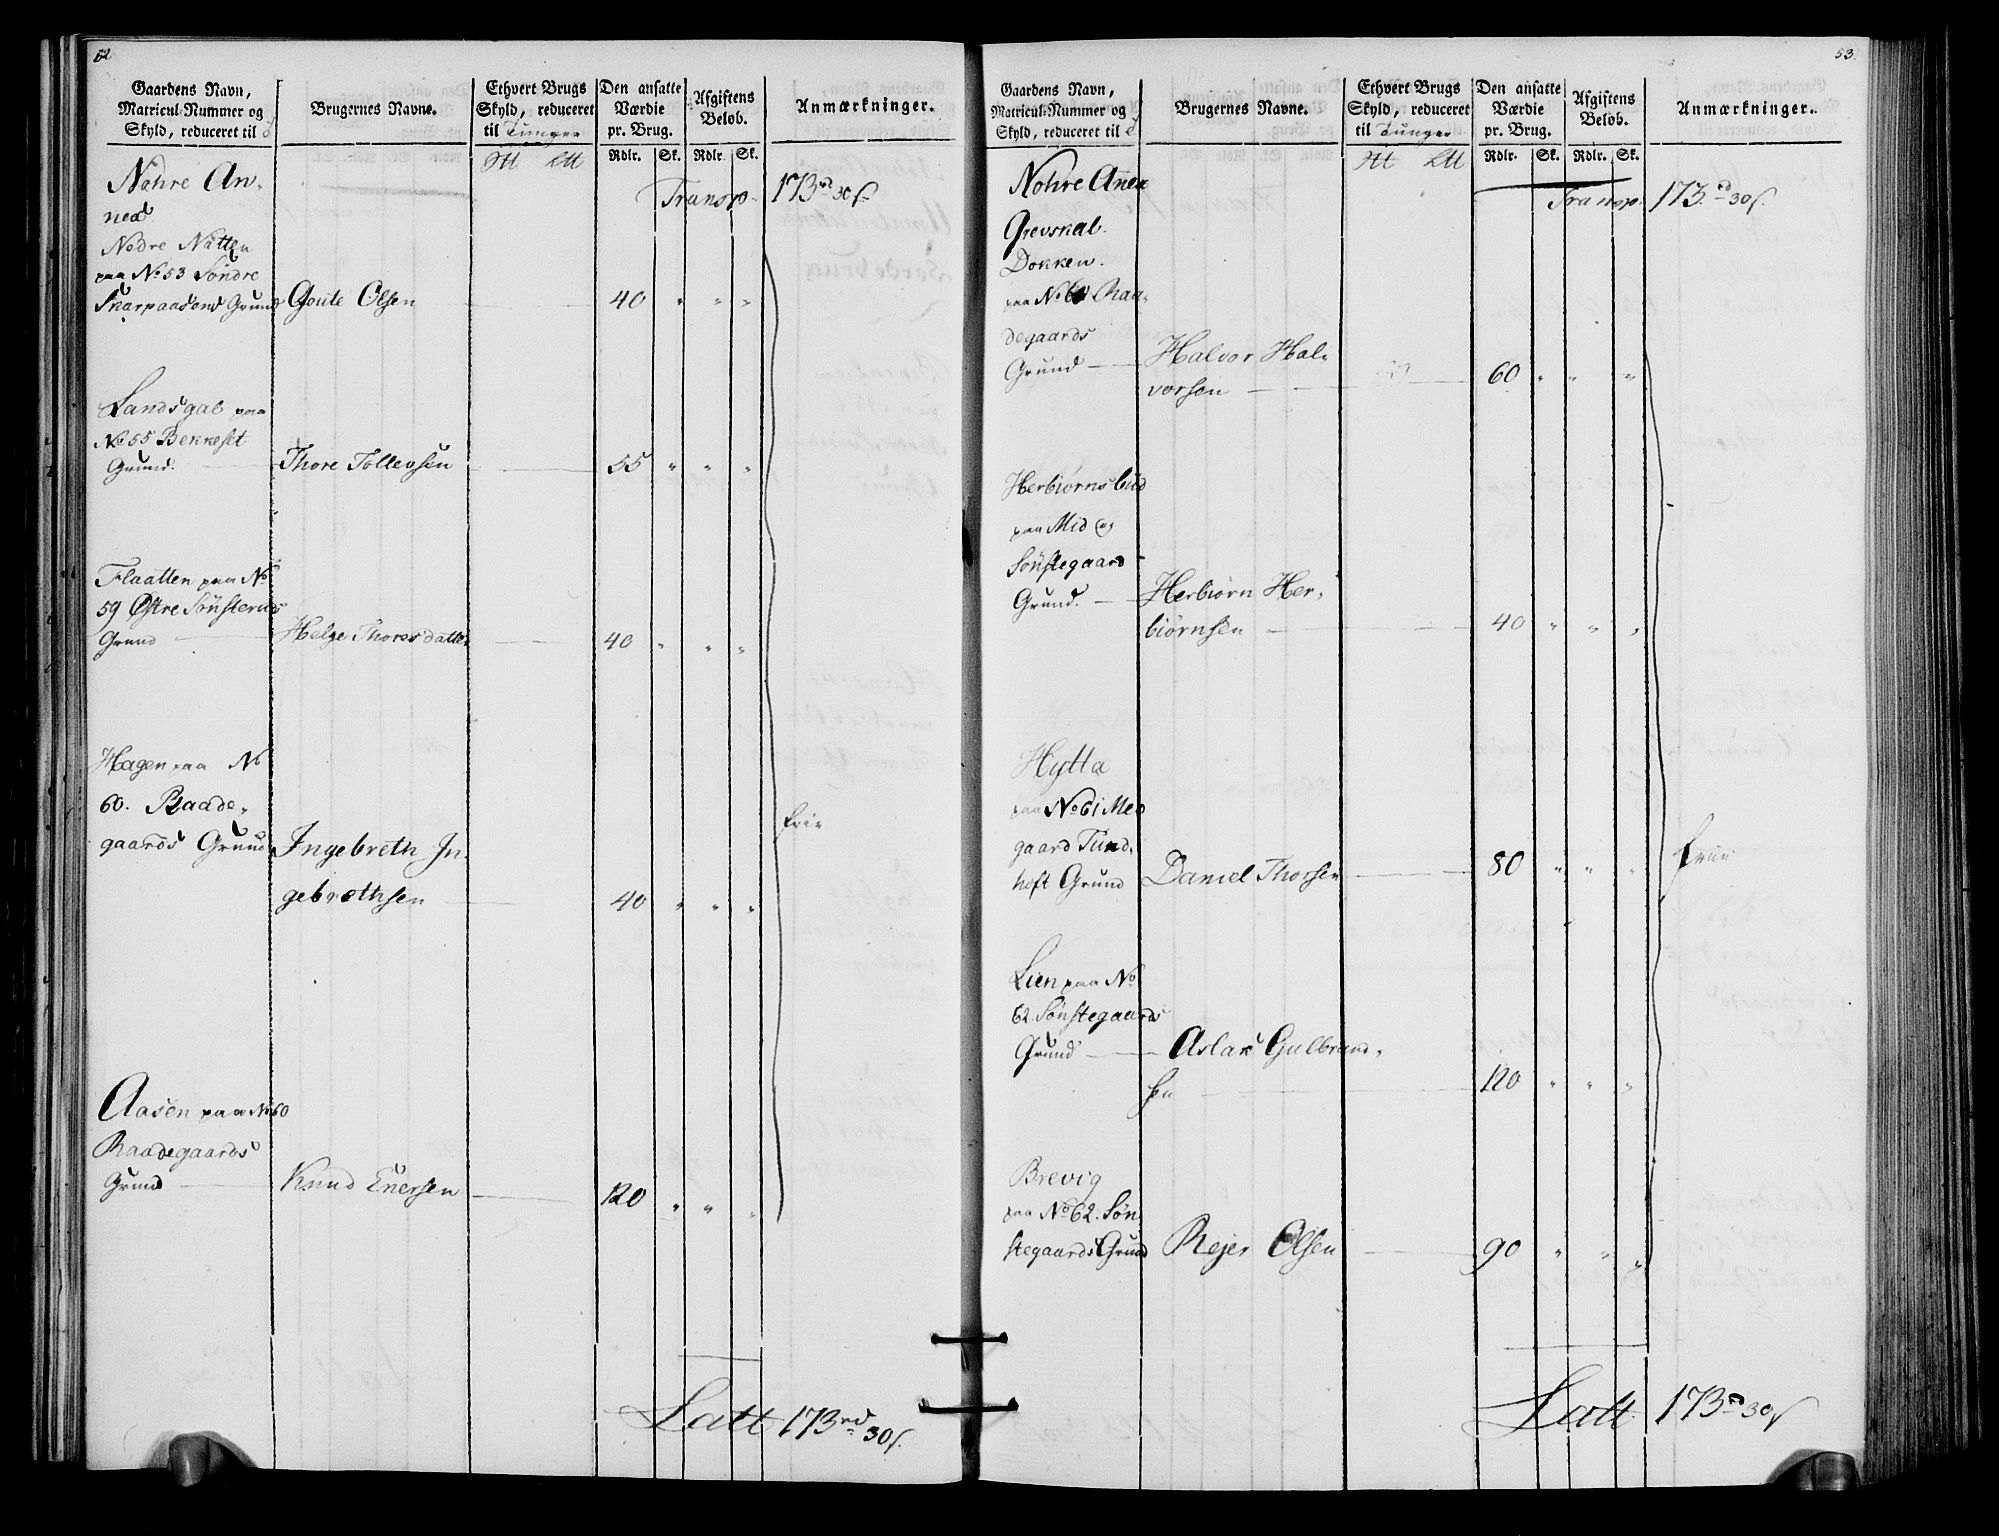 52
Gaardens Navn,
Matricul-Nummer og
Skyld, reduceret til
Brugernes Navne.
Ethvert Brugs
Skyld, reduceret
til Tunger
Den ansatte
Værdie
pr. Brug.
Afgiftens
Beløb.
Anmærkninger.
Rdlr. Sk. Rdlr. Sk.
Nohre An-
nex
Transp. 173 rd 30 s.
Nedre Natten
paa No 53 Søndre
Skarpaasend Grund Goute Olsen 40 " " "
Landsgal paa
No 55 Bekkeset
Grund. Thore Tollevsen 55 " " "
Flaatten paa No
59 Østre Sønsteruds
Grund Helge Thoresdatter 40 " " "
Hagen paa No
60. Raade-
gaards Grund Ingebreth In-
gebrethsen 40 " " "
frie
Aasen paa No 60
Raadegaards
Grund Knud Enersen 120 " " "
Latt 173 rd 30 s.
53.
Gaardens Navn,
Matricul-Nummer og
Skyld, reduceret til
Brugernes Navne.
Ethvert Brugs
Skyld, reduceret
til Tunger
Den ansatte
Værdie
pr. Brug.
Afgiftens
Beløb.
Anmærkninger.
Rdlr. Sk. Rdlr. Sk.
Nohre Anex
Transp. 173 rd 30 s.
Grevskal
Dokken.
paa No 60 Raa-
degaards
Grund Halvor Hal-
vorsen 60 " " "
Herbiørnsbud
paa Mid og
Sønstegaard
Grund. Herbiørn Her-
biørnsen 40 " " "
Hytta
paa No 61 Med
gaard Tund-
heft Grund Daniel Thorsen 80 " " "
frie
Lien paa No
62. Sønstegaards
Grund Aslak Gulbrand-
sen 120 " " "
Brevig
paa No 62. Søn-
stegaards Grund Rejer Olsen 90 " " "
Latt 173 rd 30 s